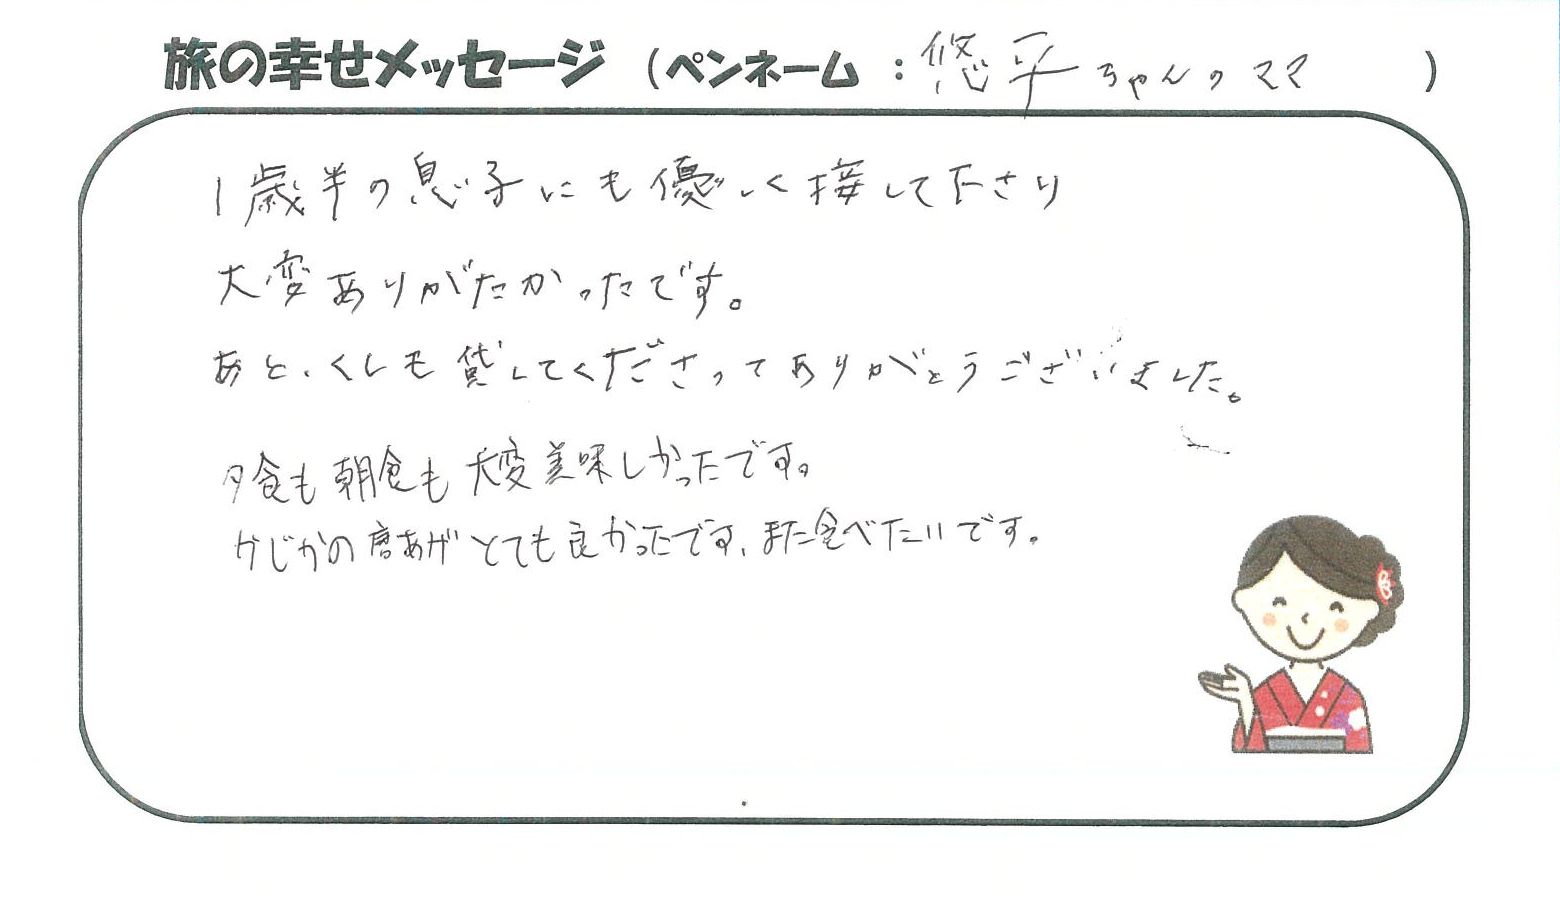 旅の幸せメッセージ （ペンネーム ：悠平ちゃんのママ ）
1歳半の息子にも優しく接して下さり
大変ありがたかったです。
あと、くしも貸してくださってありがとうございました。
夕食も朝食も大変美味しかったです。
かじかの唐あげとても良かったです、また食べたいです。